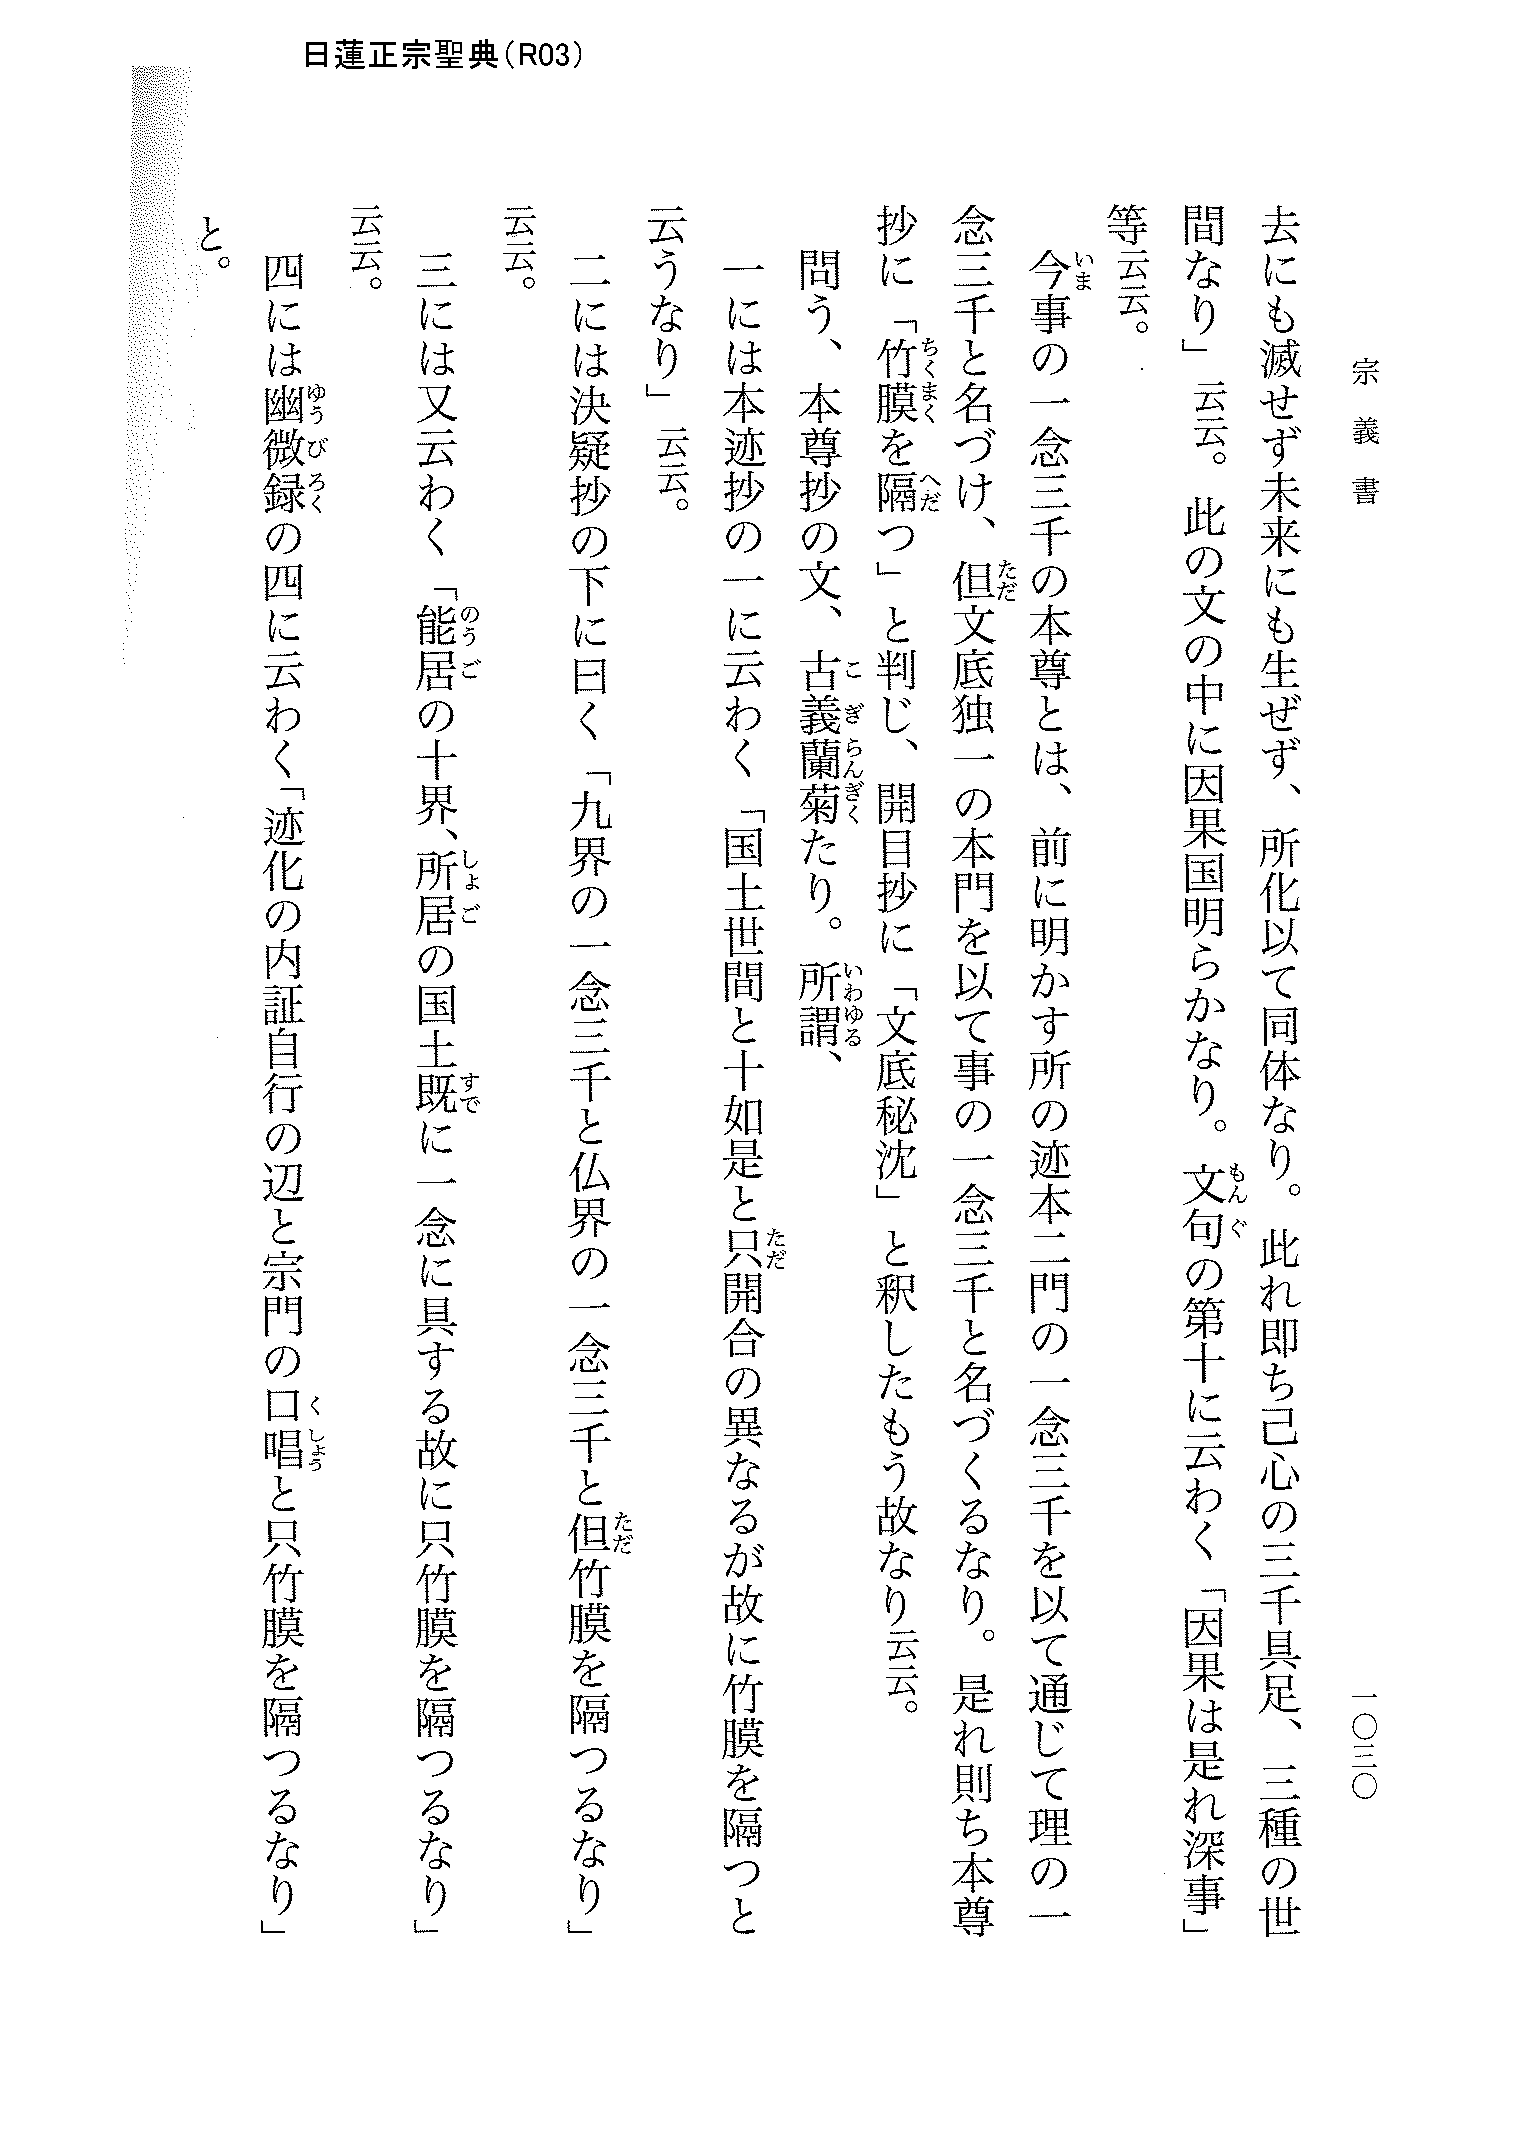 日蓮正宗聖典（R03）
宗義書
一〇三〇
去にも滅せず未来にも生ぜず、所化以て同体なり。此れ即ち己心の三千具足、三種の世
間なり」云云。此の文の中に因果国明らかなり。文句の第十に云わく「因果は是れ深事」
等云云。
今事の一念三千の本尊とは、前に明かす所の迹本二門の一念三千を以て通じて理の一
念三千と名づけ、但文底独一の本門を以て事の一念三千と名づくるなり。是れ則ち本尊
抄に「竹膜を隔つ」と判じ、開目抄に「文底秘沈」と釈したもう故なり云云。
問う、本尊抄の文、古義蘭菊たり。所謂、
一には本迹抄の一に云わく「国土世間と十如是と只開合の異なるが故に竹膜を隔つと
云うなり」云云。
二には決疑抄の下に曰く「九界の一念三千と仏界の一念三千と但竹膜を隔つるなり」
云云。
三には又云わく「能居の十界、所居の国土既に一念に具する故に只竹膜を隔つるなり」
云云。
四には幽微録の四に云わく「迹化の内証自行の辺と宗門の口唱と只竹膜を隔つるなり」
と。